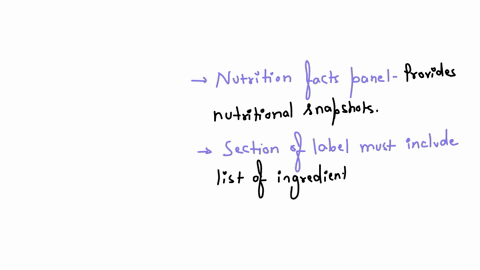 → Nutrition facts panel- Provides
nutritional snapshots.
→ Section of label must include
list of ingredient